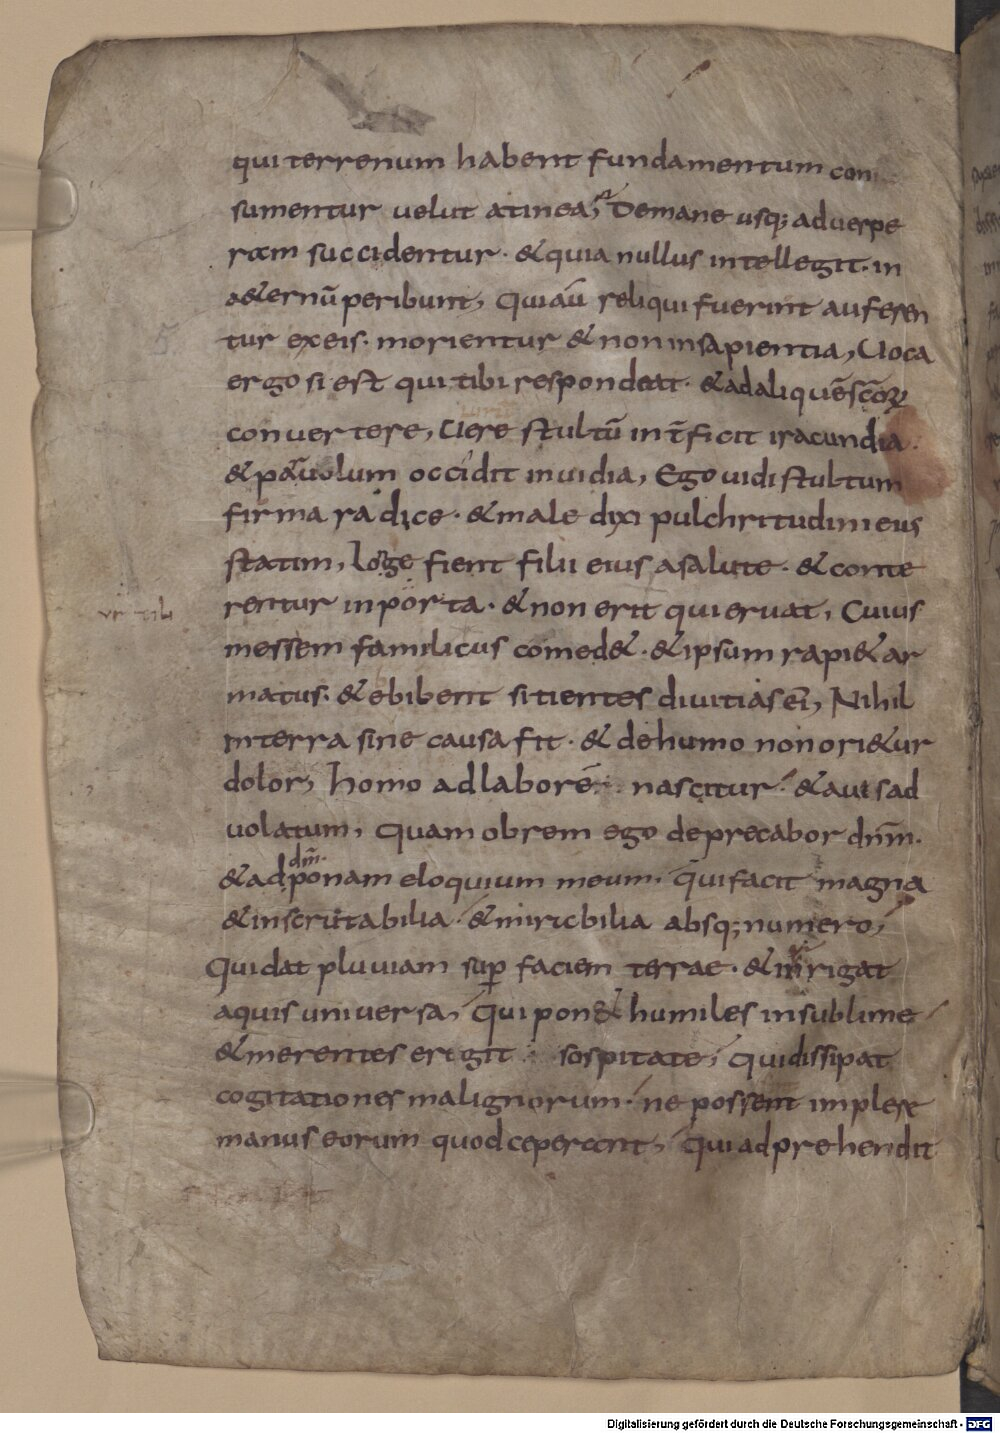 qui terrenum habent fundamentum con
sumentur uelut a tinea; Demane usq; aduespe
ram succidentur · & quia nullus intellegit · in
a&ernū peribunt, Qui aū reliqui fuerint auferen
tur ex eis · morientur & non in sapientia, Uoca
ergo si est qui tibi respondeat · & ad aliquē scōꝝ
conuertere, Uere stultū int̄ficit iracundia ·
& paruolum occidit inuidia, Ego uidi stultum
firma radice · & maledixi pulchritudini eius
statim, Loge fient filii eius a salute · & conte
rentur in porta · & non erit qui eruat, Cuius
messem familicus comed& · & ipsum rapi& ar
matus · & ebibent sitientes diuitias ei, Nihil
in terra sine causa fit · & de humo non ori&ur
dolor, homo ad laborē nascitur · & auis ad
uolatum, Quam obrem ego deprecabor dnm̄ ·
dm̄ ·
& ad ponam eloquium meum · qui facit magna
& inscrutabilia · & mirabilia absq; numero,
Qui dat pluuiam sup faciem terrae · & inrigat
aquis uniuersa, qui pon& humiles in sublime
& merentes erigit sospitate, qui dissipat
cogitationes malignorum · ne possent implere
manus eorum quod ceperant, qui adprehendit
Digitalisierung gefördert durch die Deutsche Forschungsgemeinschaft - DFG